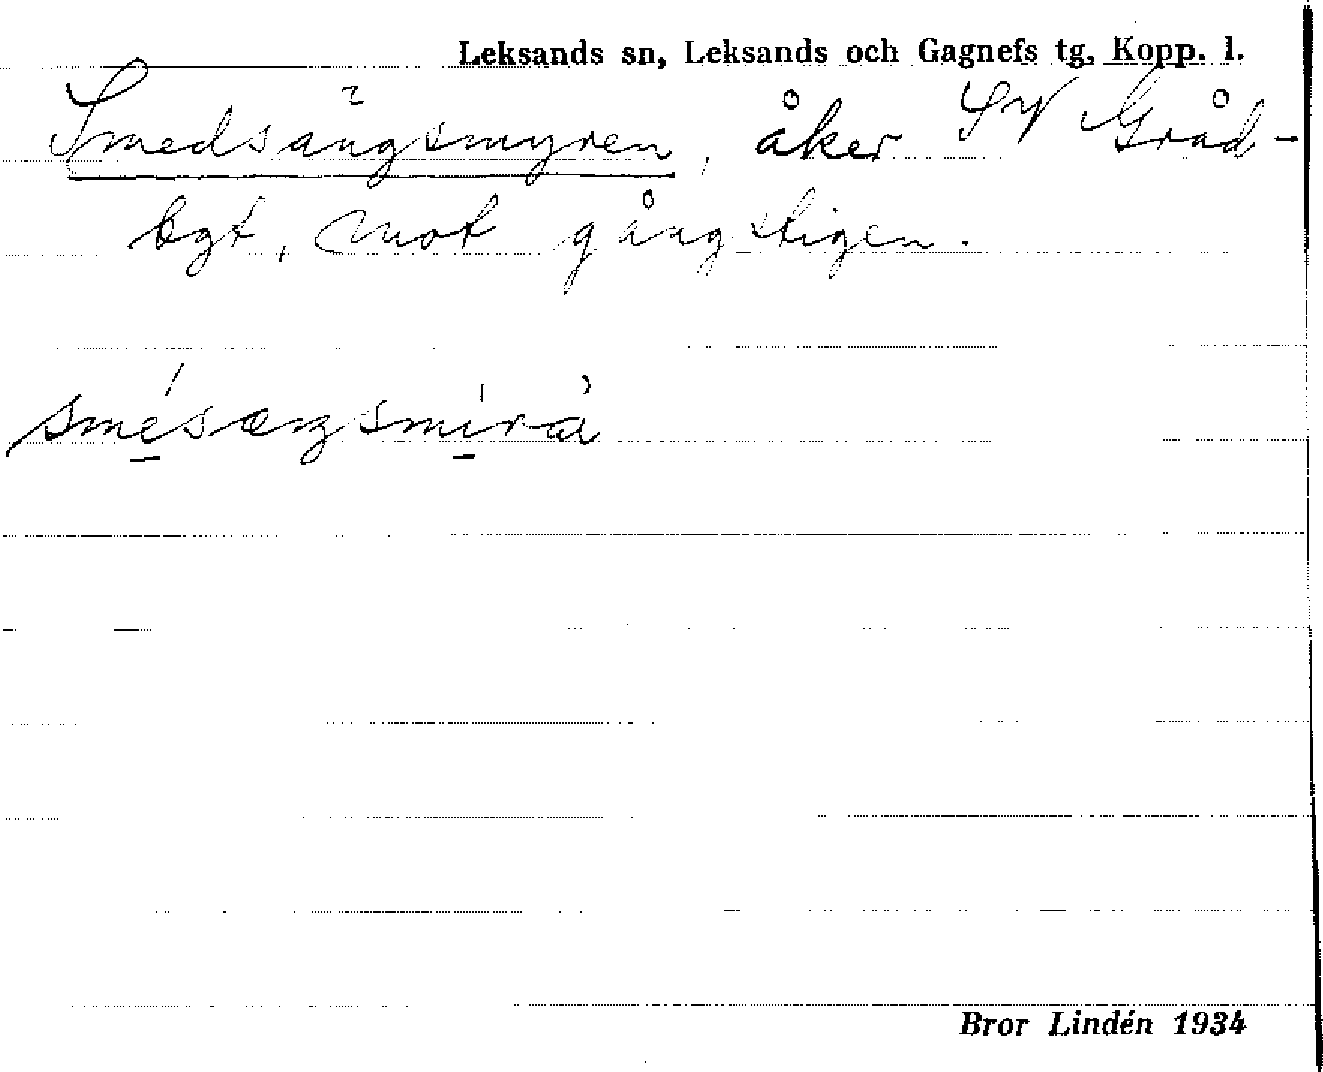 Leksands sn, Leksands och Gagnefs tg, Kopp. l.
Smedsängsmyren, åker SV Gråd-
bgt, mot gångstigen.
smésæŋsmirὰ
Bror Lindén 1934